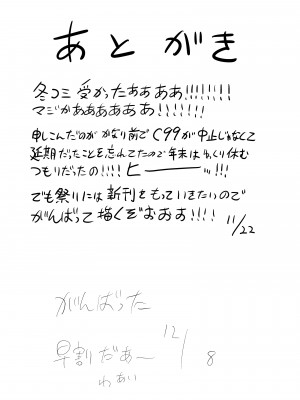 あとがき
冬コミ受かったぁぁぁぁ!!!!!!!
マジかぁぁぁぁぁぁ!!!!!!!
申しこんだのがかなり前でC99が中止じゃなくて
延期だったことを忘れてたので年末はゆっくり休む
つもりだったの!!!!ヒーーーーッ!!!
でも祭りには新刊をもっていきたいので
がんばって描くぞぉぉぉ!!!!
11/22
がんばった
12/8
早割だぁ〜
わぁい